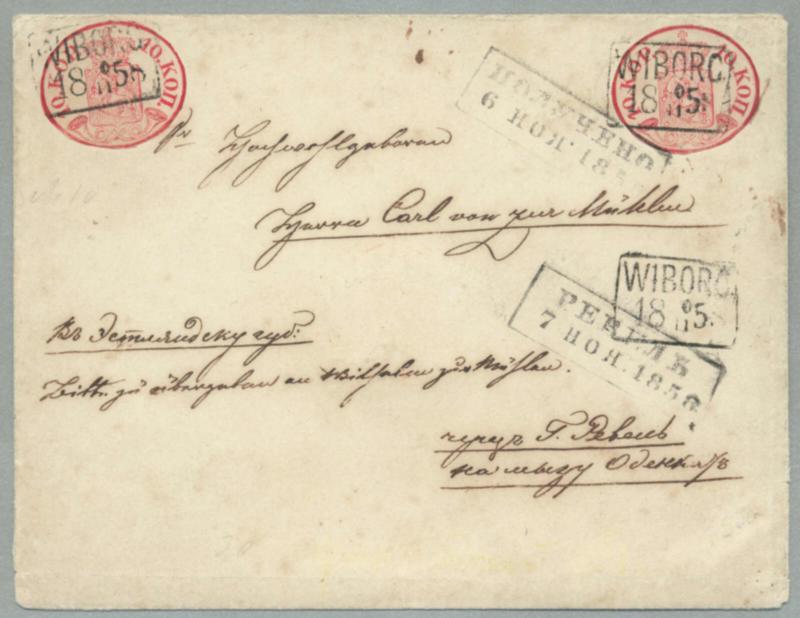 10. КОП. 10. КОП.
WIBORG
18 5/11 58
10. КОП. 10. КОП.
WIBORG.
18 5/11 58
ПОЛУЧЕНО
6 НОЯ. 185
Sr Hochwohlgeboren
Herrn Carl von zur Mühlen
WIBORG.
18 5/11 58
РЕВЕЛЬ
7 НОЯ. 1858
въ Эстляндску губ:
Bitte zu übergeben an Wilhelm zur Mühlen.
чрезъ Г. Ревель
на мызу